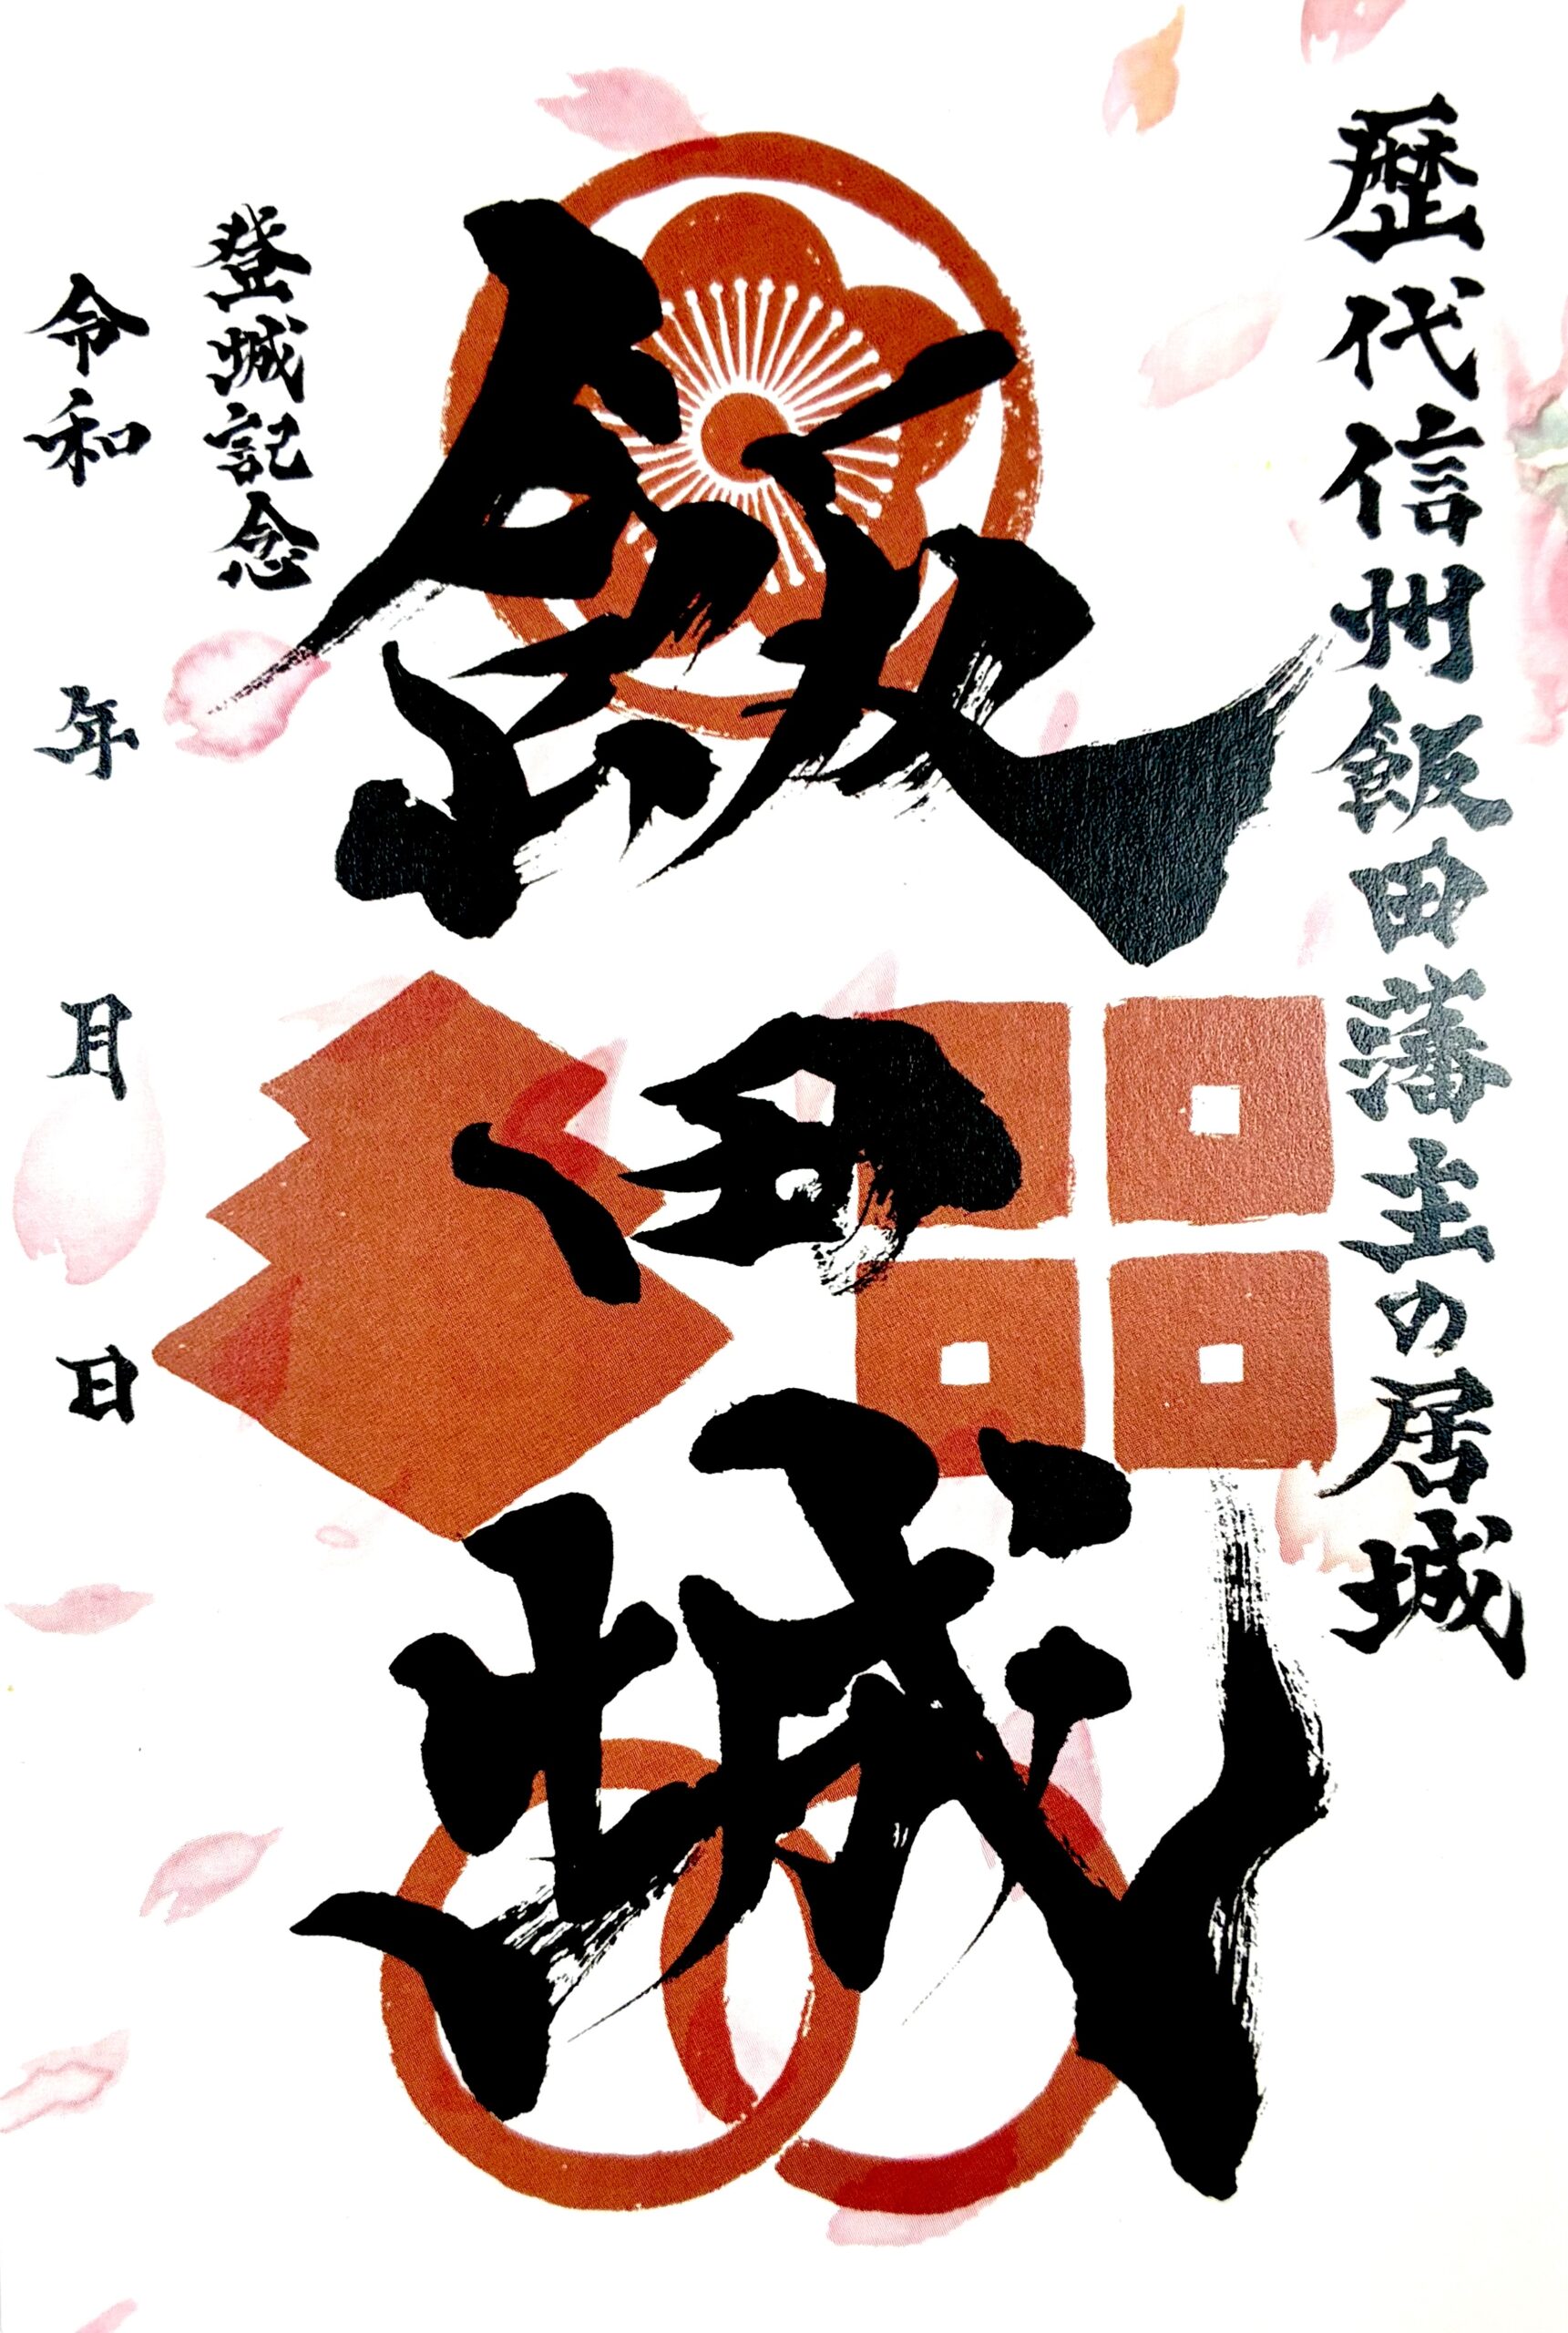 歴代信州飯田藩主の居城
飯田城
登城記念
令和 年 月 日